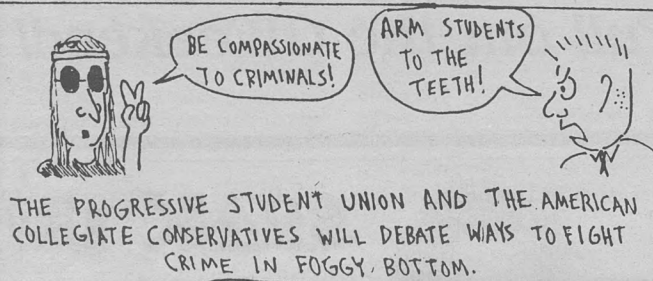 BE COMPASSIONATE
TO CRIMINALS!
ARM STUDENTS
TO THE
TEETH!
THE PROGRESSIVE STUDENT UNION AND THE AMERICAN
COLLEGIATE CONSERVATIVES WILL DEBATE WAYS TO FIGHT
CRIME IN FOGGY BOTTOM.